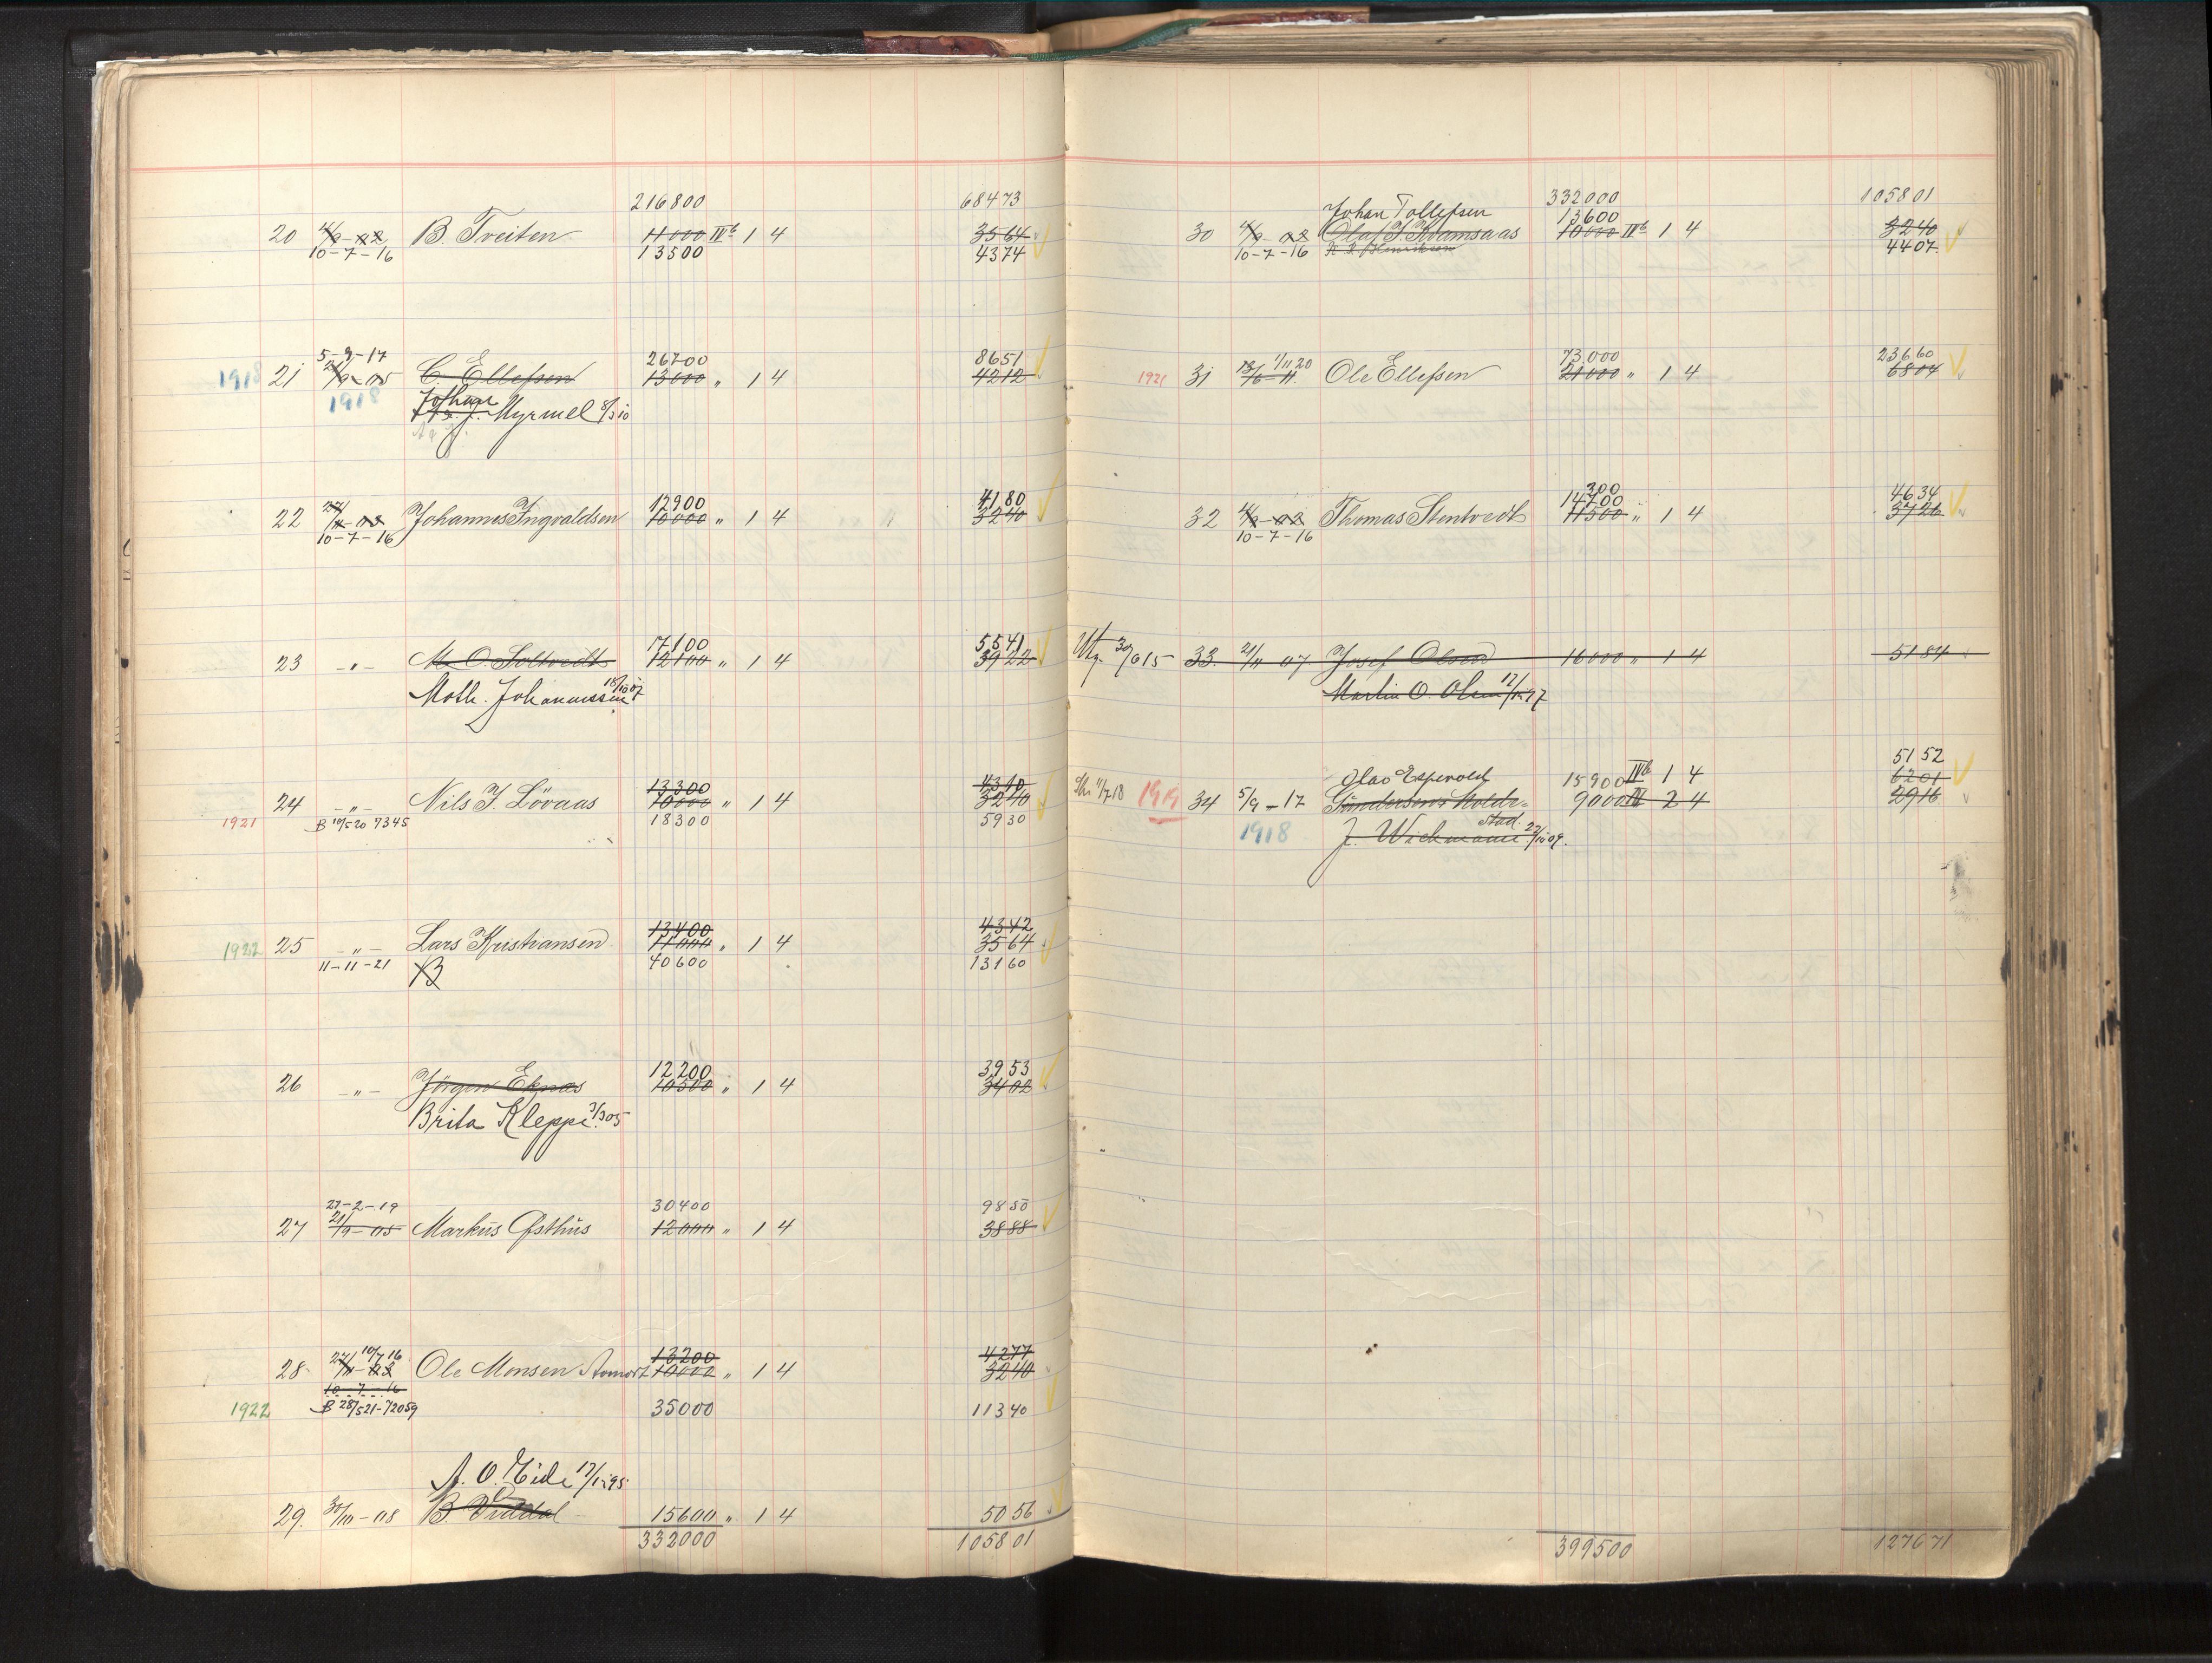 216800 68473
20 4/9-02 B. Tveiten 11000 IIIb 1 4 3564
10-7-16 13500 4374
5-9-17 26700 8651
1918 21 21/9-05 C. Ellefsen 13000 " 1 4 4212
1918 Johan
J. Myrmel 8/3 10
12900 4180
22 27/11-02 Johannes Ingvaldsen 10000 " 1 4 3240
10-7-16
17100 5541
23 -"- M. O. Soltvedt 12100 " 1 4 3922
Math. Johannessen 18/10 07
13300 4310
24 -"- Nils J. Lövaas 10000 " 1 4 3240
1921 B 10/5 20 7345 18300 5930
13400 4342
1922 25 -"- Lars Kristiansen 11000 " 1 4 3564
11-11-21 B 40600 13160
12200 3953
26 -"- Jörgen Eknæs 10500 " 1 4 3402
Brita Kleppe 3/3 05
27-2-19 30400 9850
27 21/9-05 Markus Østhus 12000 " 1 4 3888
10/7 16 13200 4277
28 27/11-02 Ole Monsen 10000 " 1 4 3240
10-7-16
1922 B 28/5 21-72059 35000 11340
A. O. Eide 17/12 95
29. 30/10-08 B. Viddal 15600 " 1 4 5056
332000 105801
332000 105801
Johan Tollefsen 13600
30 4/9-02 Olaf J. Kvamsaas 10000 IIIb 1 4 3240
10-7-16 Henriksen 4407
1/11 20 73000 23660
1921 31 18/6-11. Ole Ellefsen 21000 " 1 4 6804
300
14700 4634
32 4/9-02 Thomas Stentvedt 11500 " 1 4 3726
10-7-16
Utg. 30/6 15 33. 21/11 07 Josef Olsen 16000 " 1 4 5184
Martin O. Olsen 17/12 97
5152
Olav Espevold 15900 IIIb 1 4 6201
11/7 18 1919 34 5/9-17 9000 III 2 4 2916
stad.
1918 J. Wichmann 22/10 09.
399500 127671